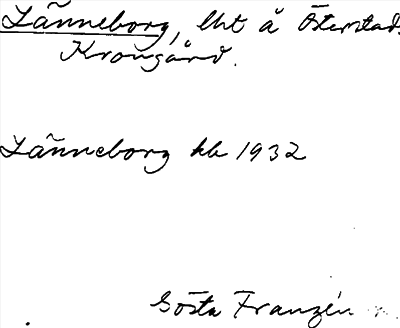 Länneborg, lht å Österstad
Krongård.
Länneborg kb 1932
Gösta Franzén